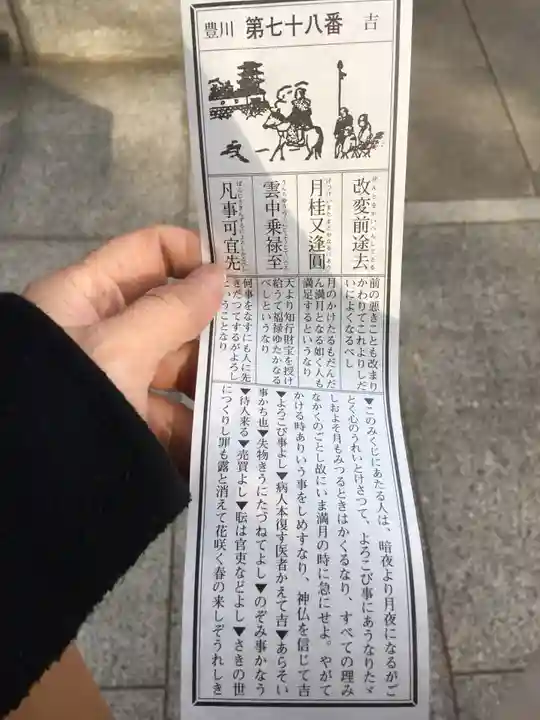 豊川 第七十八番 吉
改変前途去
月桂又逢圓
雲中乗禄至
凡事可宜先
前の悪きことも改まり
かわりてこれよりしだ
いによくなるべし
月のかけたるもだんだ
ん満月となる如く人も
満足するというなり
天より知行財宝を授け
給うて福禄ゆたかなる
べしというなり
何事をなすにも人に先
きだつてするがよろし
ということなり
▼このみくじにあたる人は、暗夜より月夜になるがご
とく心のうれいとけさつて、よろこび事にあうなりたゞ
しおよそ月もみつるときはかくるなり、すべての理み
なかくのごとし故にいま満月の時に急にせよ。やがて
かける時ありいう事をしめすなり、神仏を信じて吉
▼よろこび事よし▼病人本復す医者かえて吉▼あらそい
事かち也▼失物きうにたづねてよし▼のぞみ事かなう
▼待人来る▼売買よし▼転は官吏などよし▼さきの世
につくりし罪も露と消えて花咲く春の来しぞうれしき